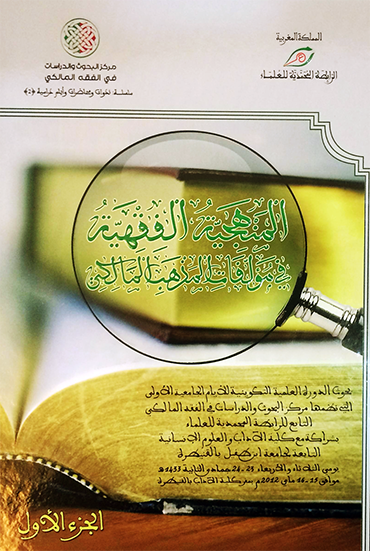 المملكة المغربية
الرابطة المحمدية للعلماء
مركز البحوث والدراسات
في الفقه المالكي
سلسلة: ندوات ومحاضرات وأيام دراسية (5)
المنهجية الفقهية
في مؤلفات المذهب المالكي
بحوث الدورة العلمية التكوينية للأيام الجامعية الأولى
التي نظمها مركز البحوث والدراسات في الفقه المالكي
التابع للرابطة المحمدية للعلماء
بشراكة مع كلية الآداب والعلوم الإنسانية
التابعة لجامعة ابن طفيل بالقنيطرة
يومي الثلاثاء والأربعاء 23-24 جمادى الثانية 1433هـ
موافق 15-16 ماي 2012م بمقر كلية الآداب بالقنيطرة
الجزء الأول